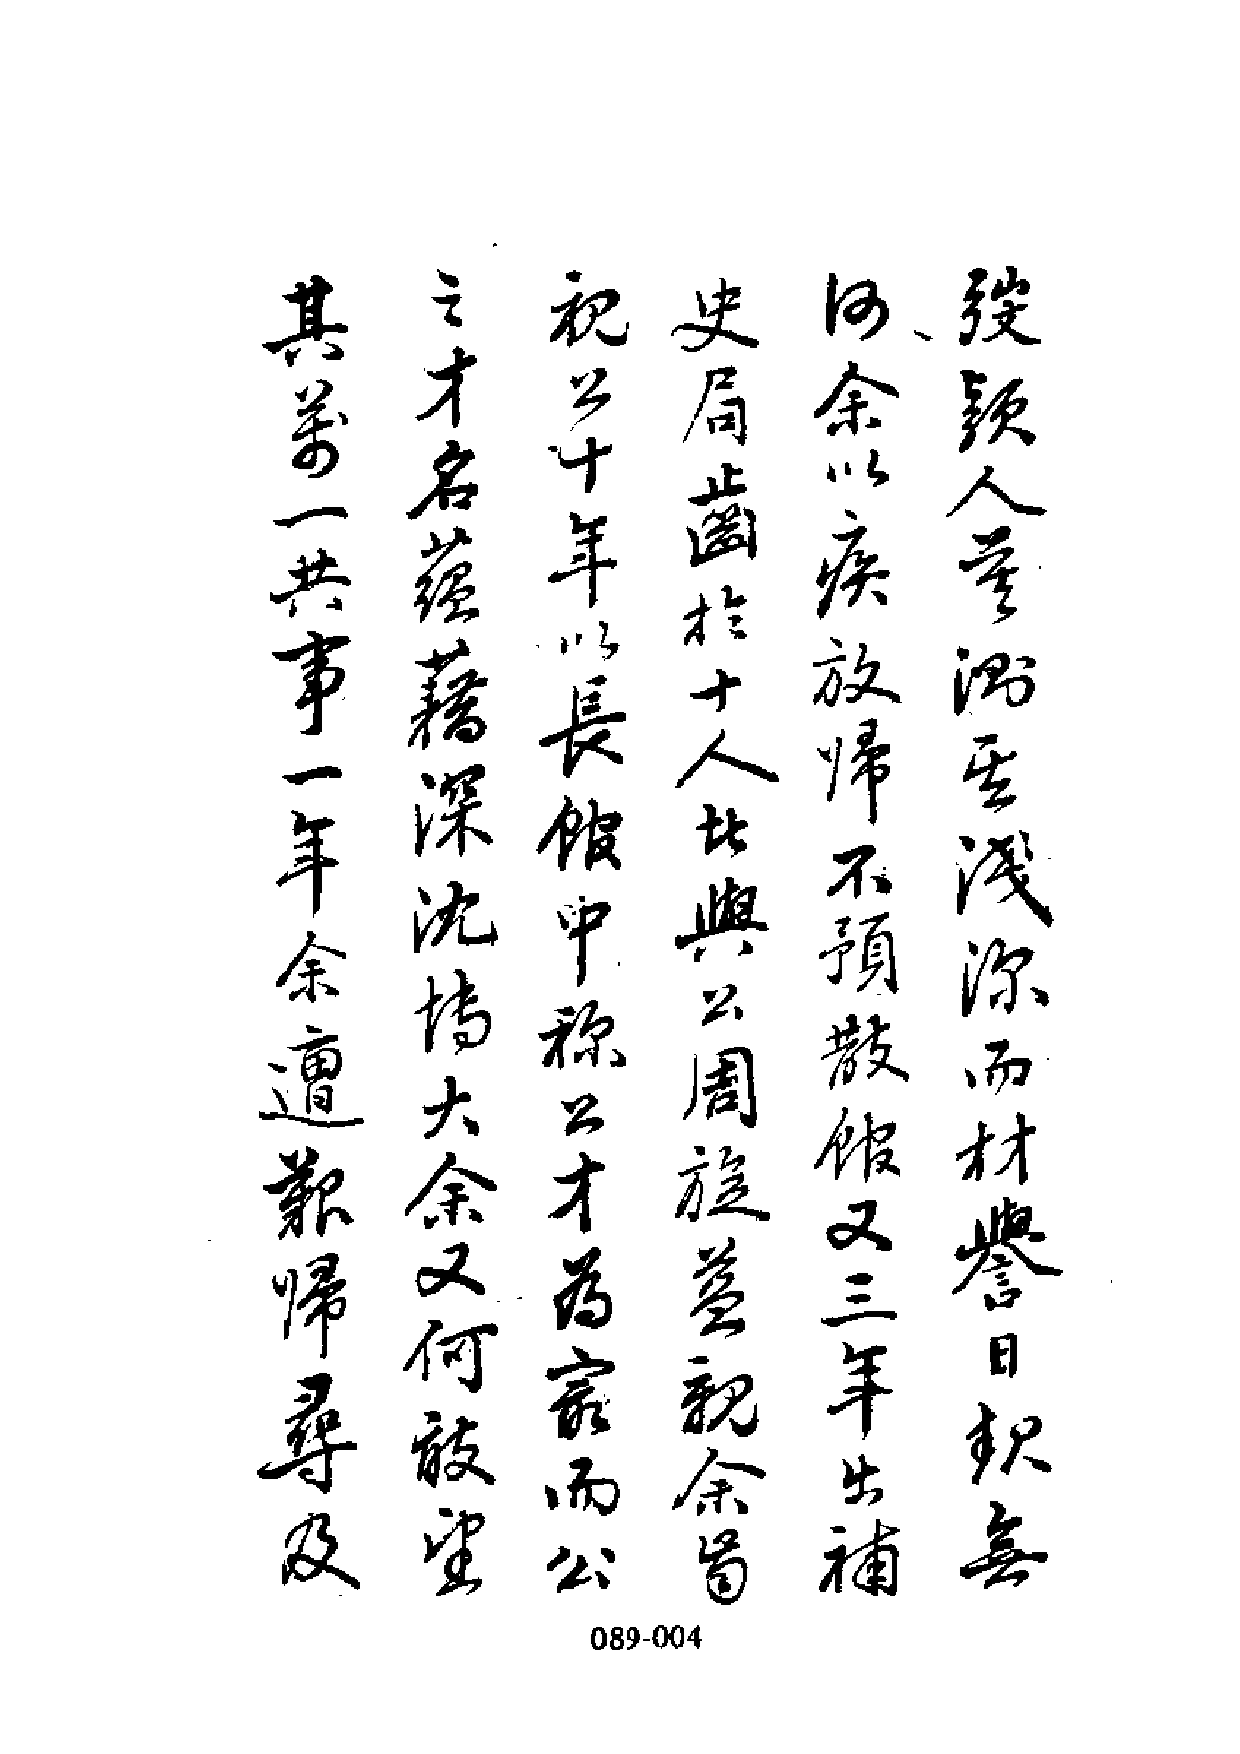 發穎人莫測其淺深而材譽日執無
何余以疾放歸不預散館又三年出補
史局齒於十人比與公周旋益親余嘗
視公十年以長館中稱公才為最而公
之才名蘊藉深沈博大余又何敢望
其萬一共事一年余遭艱歸尋及
089-004